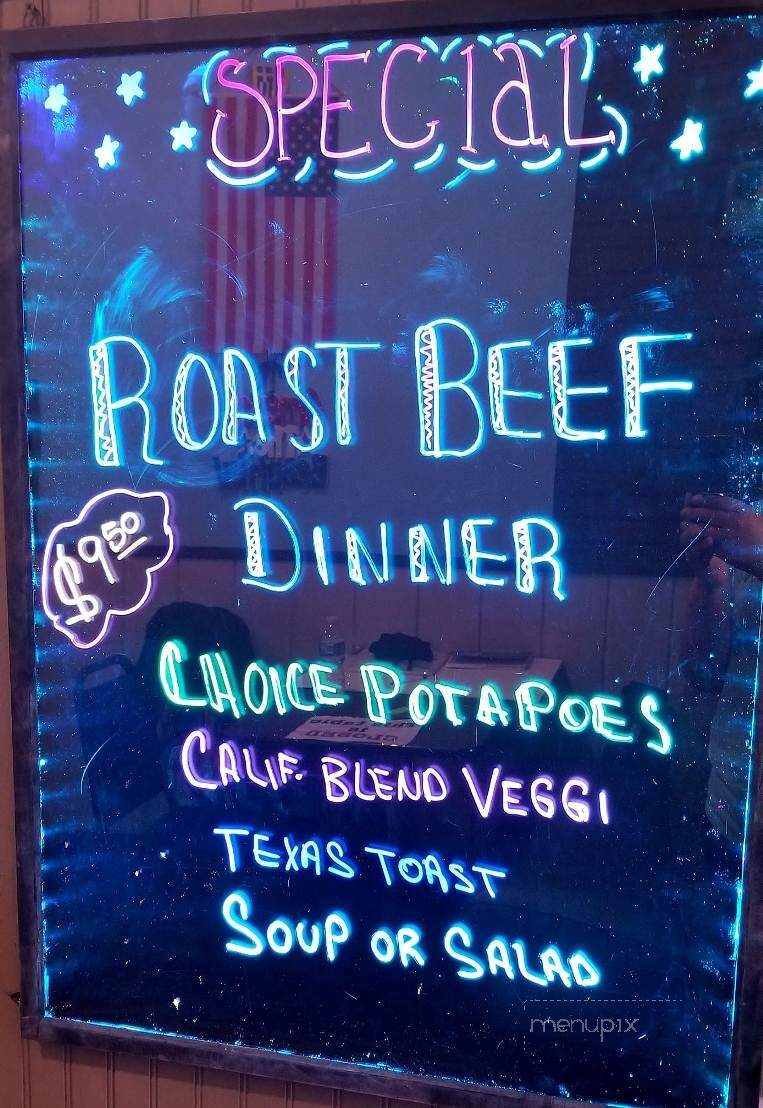 SPECIaL
ROAST BEEF
DINNER
$9.50
CHOICE POTAPOES
CALIF. BLEND VEGGI
TEXAS TOAST
SOUP OR SALAD
menupix